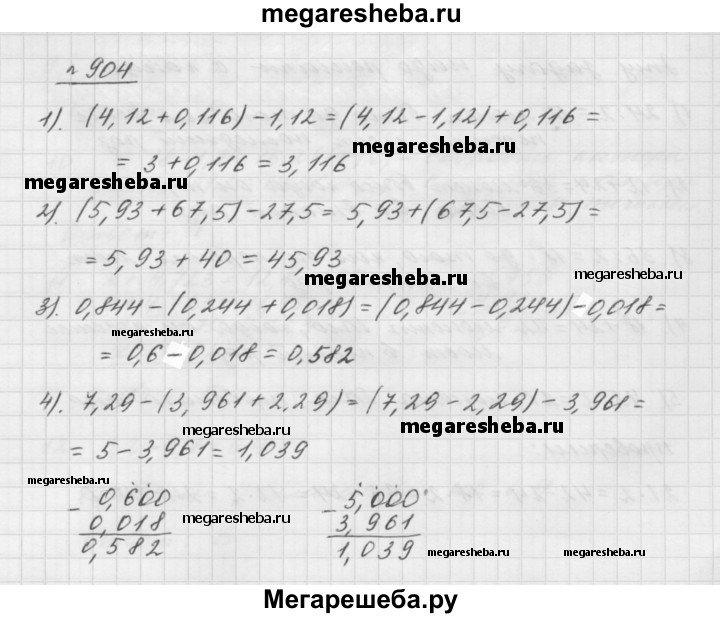 megaresheba.ru
№ 904
1). (4,12+0,116)-1,12=(4,12-1,12)+0,116=
megaresheba.ru
= 3+0,116=3,116
megaresheba.ru
2). (5,93+67,5)-27,5=5,93+(67,5-27,5)=
= 5,93+40=45,93
megaresheba.ru
megaresheba.ru
3). 0,844-(0,244+0,018)=(0,844-0,244)-0,018=
megaresheba.ru
= 0,6-0,018=0,582
4). 7,29-(3,961+2,29)=(7,29-2,29)-3,961=
megaresheba.ru
megaresheba.ru
= 5-3,961=1,039
megaresheba.ru
- 0,600 - 5,000
0,018 3,961
megaresheba.ru
0,582 1,039
megaresheba.ru
megaresheba.ru
Мегарешеба.ру